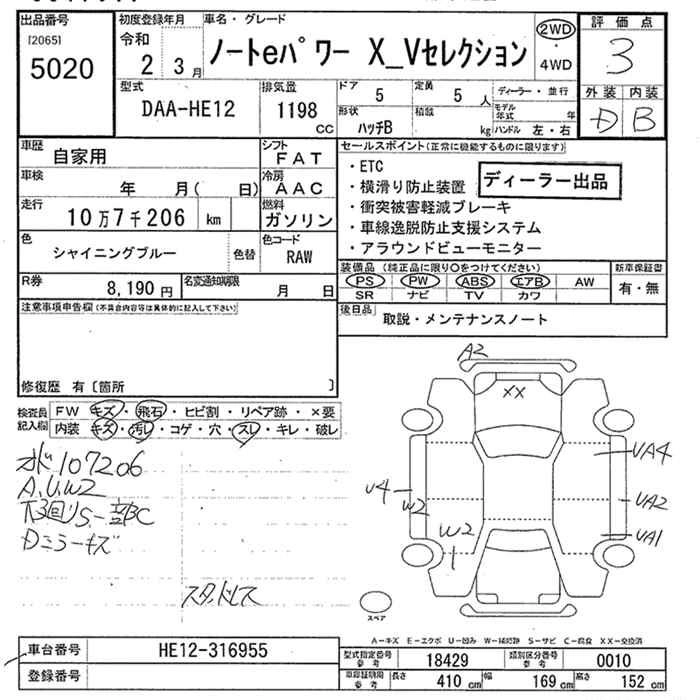 出品番号
[2065]
5020
初度登録年月
令和
2 3月
車名・グレード
ノートeパワー X_Vセレクション
2WD
・
4WD
評価点
3
外装 内装
D B
型式
DAA-HE12
排気量
1198
CC
ドア 5
定員 5 人
ディーラー・並行
形状
ハッチB
積載 kg
モデル年式 年
ハンドル 左・右
車歴
自家用
シフト
FAT
車検
年 月( 日)
冷房
AAC
走行
10万7千206 km
燃料
ガソリン
色
シャイニングブルー
色替
色コード
RAW
R券
8,190 円
名変通知期限
月 日
セールスポイント(正常に機能するものに限ります)
・ETC
・横滑り防止装置
・衝突被害軽減ブレーキ
・車線逸脱防止支援システム
・アラウンドビューモニター
ディーラー出品
装備品 (純正品に限り〇をつけてください)
PS PW ABS エアB AW
SR ナビ TV カワ
新車保証書
有・無
後日品
取説・メンテナンスノート
注意事項申告欄(不具合内容等は具体的に記入して下さい)
修復歴 有〔箇所 〕
検査員記入欄
FW キズ・飛石・ヒビ割・リペア跡・×要
内装 キズ・汚レ・コゲ・穴・スレ・キレ・破レ
107206
A.U.W2
Dミラーキズ
スタッドレス
A2
XX
UA4
U4
W2
UA2
W2
UA1
スペア
A-キズ E-エクボ U-凹み W-補修跡 S-サビ C-腐食 XX-交換済
車台番号
HE12-316955
登録番号
型式指定番号
参考
18429
類別区分番号
参考
0010
車庫証明用
参考
長さ 410 cm
幅 169 cm
高さ 152 cm